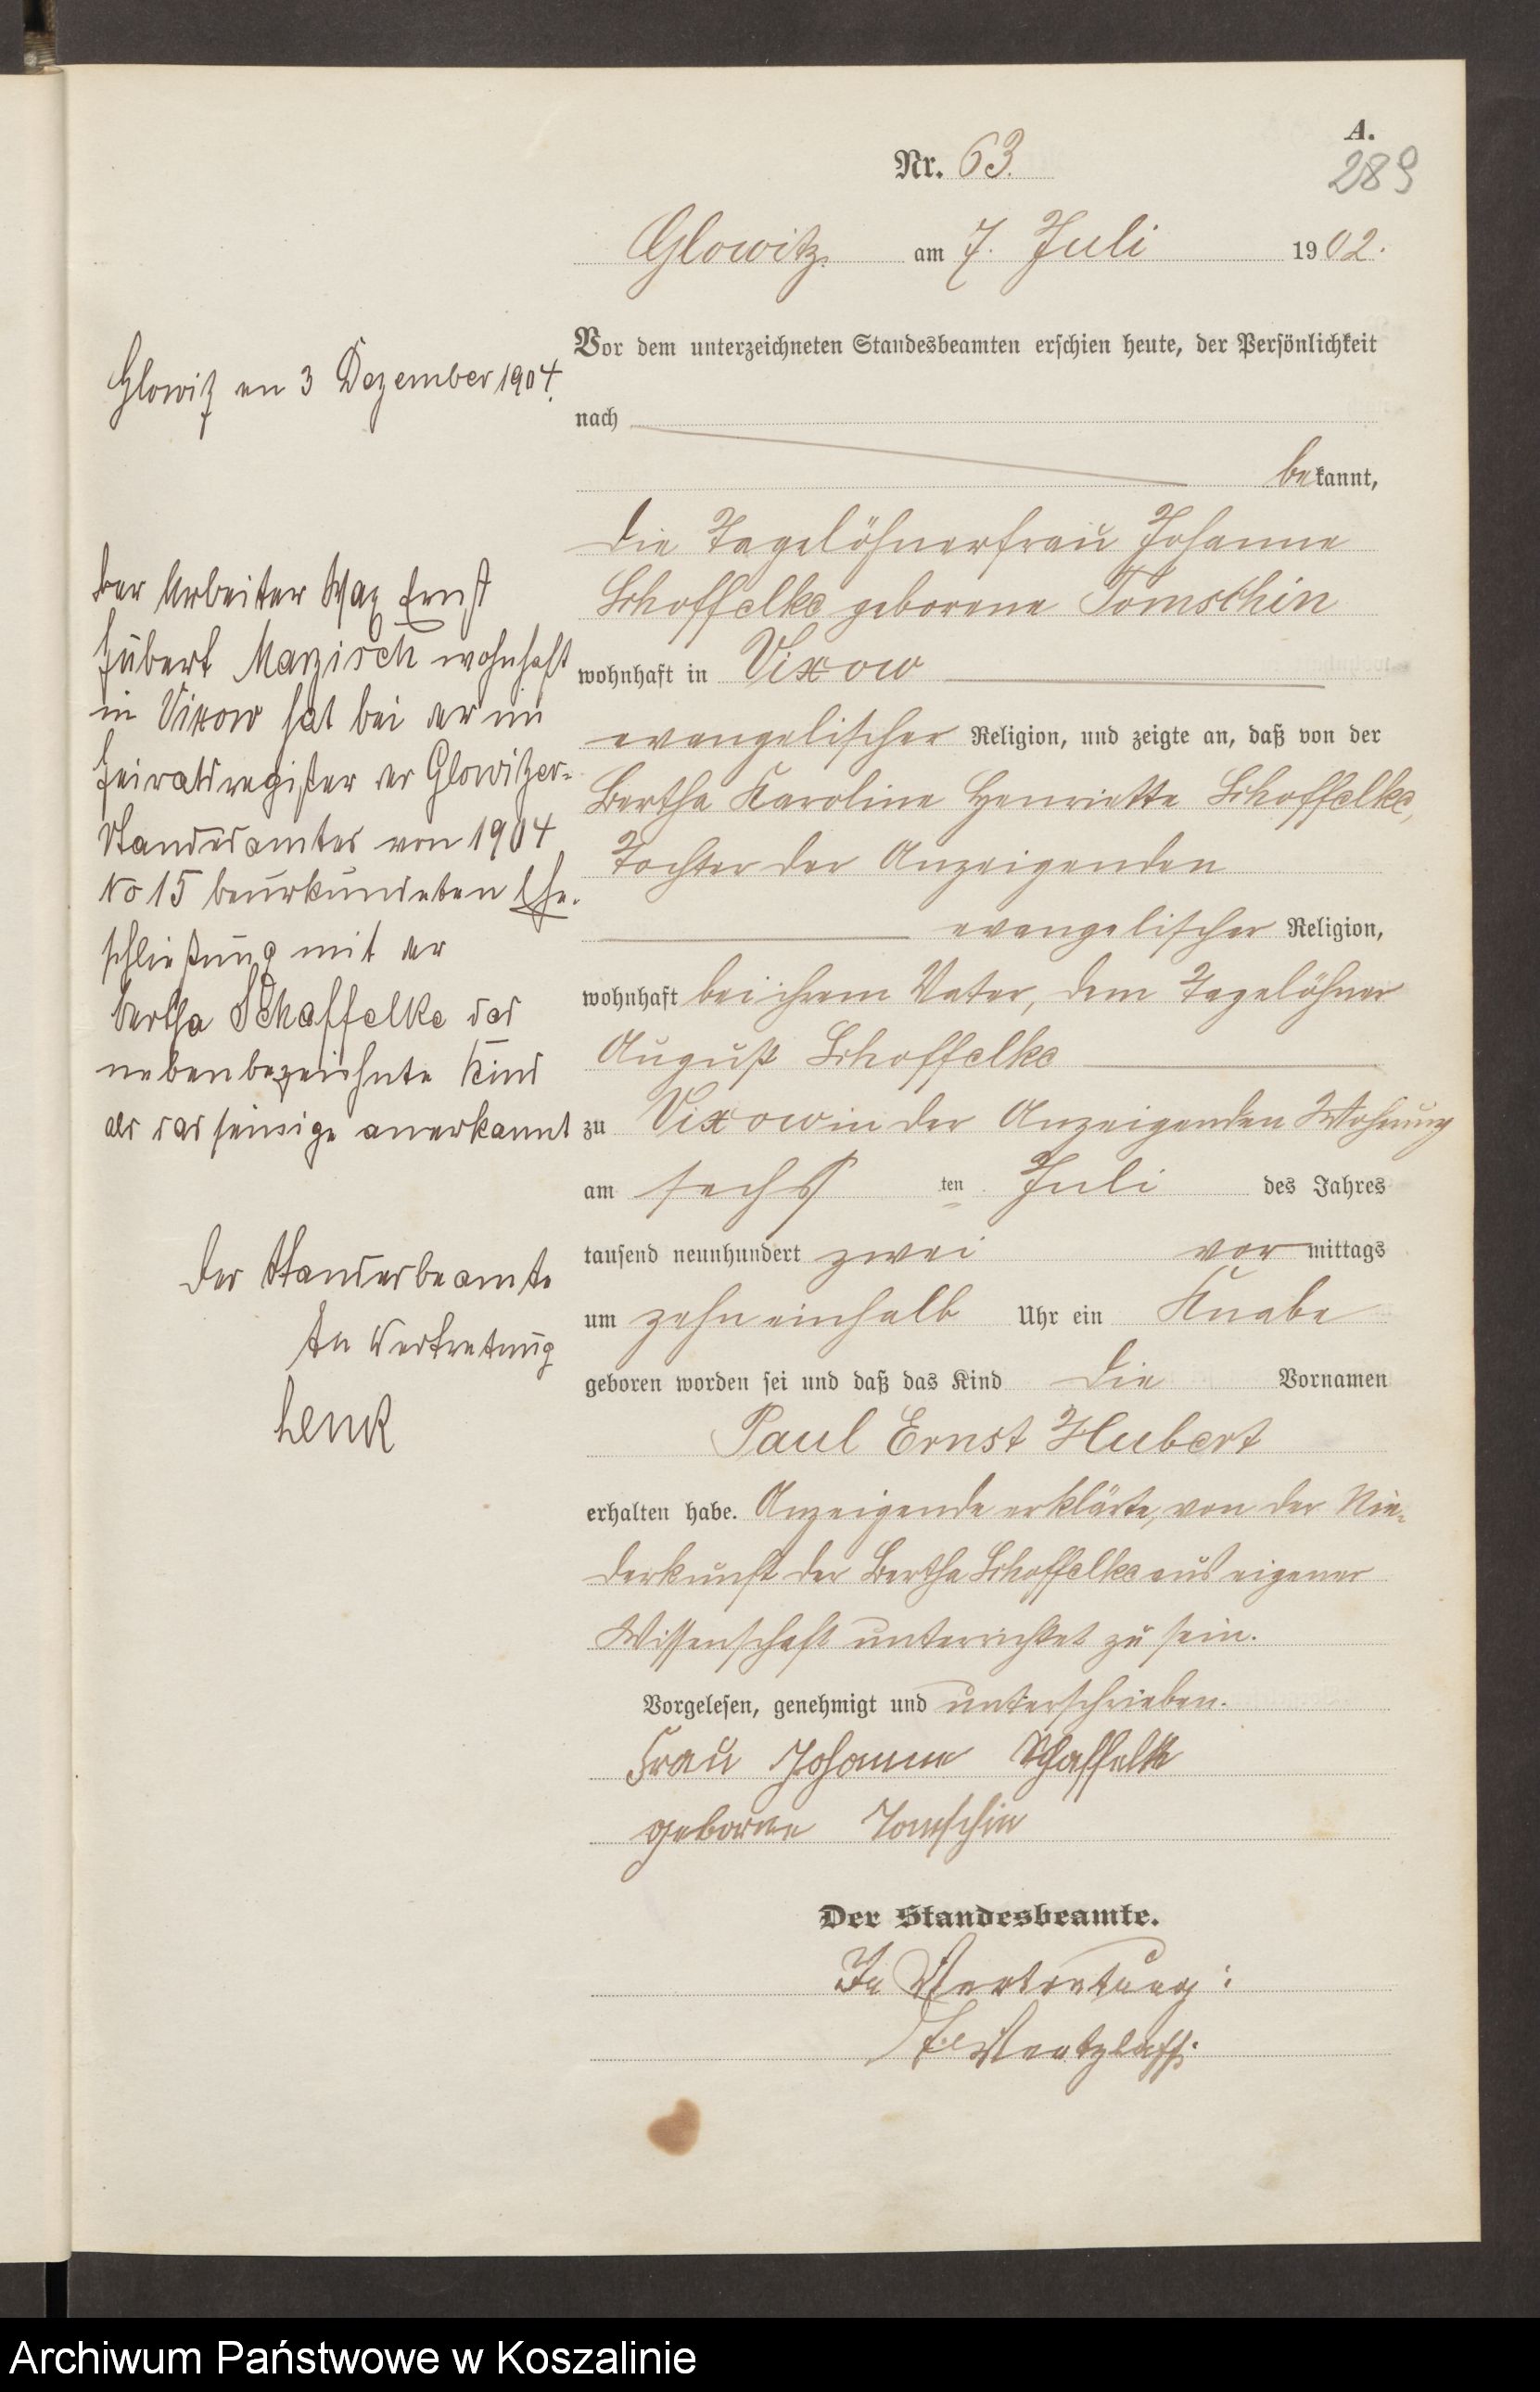 A.
289
Nr. 63.
Glowitz am 7. Juli 1902.
Vor dem unterzeichneten Standesbeamten erschien heute, der Persönlichkeit
nach
bekannt,
die Tagelöhnerfrau Johanne
Schoffelke geborene Tomschin
wohnhaft in Vixow
evangelischer Religion, und zeigte an, daß von der
Bertha Karoline Henriette Schoffelke,
Tochter der Anzeigenden
evangelischer Religion,
wohnhaft bei ihrem Vater, dem Tagelöhner
August Schoffelke
zu Vixow in der Anzeigenden Wohnung
am sechs ten Juli des Jahres
tausend neunhundert zwei vormittags
um zehn einhalb Uhr ein Knabe
geboren worden sei und daß das Kind die Vornamen
Paul Ernst Hubert
erhalten habe. Anzeigende erklärte, von der Nie-
derkunft der Bertha Schoffelke aus eigener
Wissenschaft unterrichtet zu sein.
Vorgelesen, genehmigt und unterschrieben.
Frau Johanne Schaffelke
geborne Tomschin
Der Standesbeamte.
In Vertretung:
Glowitz den 3 Dezember 1904.
Der Arbeiter Max Ernst
Hubert Marzisch wohnhaft
in Vixow hat bei der im
Heiratsregister des Glowitzer-
Standesamtes von 1904
No 15 beurkundeten Ehe-
schließung mit der
Bertha Schaffelke das
nebenbezeichnete Kind
als das seinige anerkannt
Der Standesbeamte
In Vertretung
Lenk
Archiwum Państwowe w Koszalinie